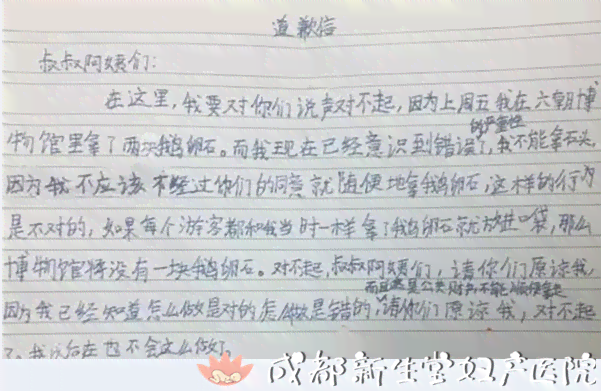 道歉信
叔叔阿姨们:
在这里,我要对你们说声对不起,因为上周五我在六朝博
物馆里拿了两块鹅卵石。而我现在已经意识到错误的严重性了,我不能拿石头,
因为我不应该不经过你们的同意就随便地拿鹅卵石,这样的行为
是不对的,如果每个游客都和我当时一样拿了鹅卵石就放进口袋,那么
博物馆将没有一块鹅卵石。对不起,叔叔阿姨们,请你们原谅我,
而且这是公共财物不能随便拿走
因为我已经知道怎么做是对的怎么做是错的,请你们原谅我,对不起
了。我以后在也不会这么做了。
成都新生堂妇产医院